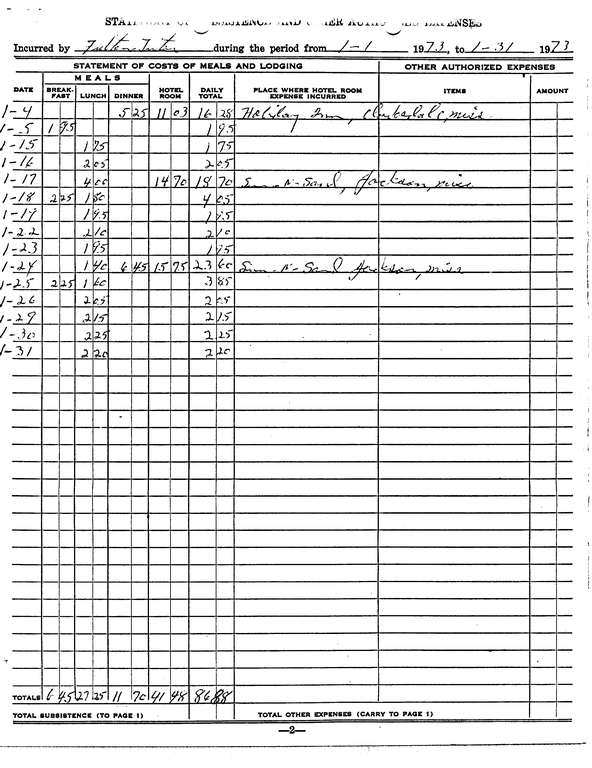 STATEMENT OF SUBSISTENCE AND OTHER AUTHORIZED EXPENSES
Incurred by Fulton Tutor during the period from 1-1 1973, to 1-31 1973
STATEMENT OF COSTS OF MEALS AND LODGING OTHER AUTHORIZED EXPENSES
MEALS
DATE BREAK-FAST LUNCH DINNER HOTEL ROOM DAILY TOTAL PLACE WHERE HOTEL ROOM EXPENSE INCURRED ITEMS AMOUNT
1-4 5 25 11 03 16 28 Holiday Inn, Clarksdale, miss
1-5 1 95 1 95
1-15 1 75 1 75
1-16 2 05 2 05
1-17 4 00 14 70 18 70 Sun-N-Sand, Jackson, miss
1-18 2 25 1 80 4 05
1-19 1 95 1 95
1-22 2 10 2 10
1-23 1 95 1 95
1-24 1 40 6 45 15 75 23 60 Sun-N-Sand Jackson, miss
1-25 2 25 1 60 3 85
1-26 2 05 2 05
1-29 2 15 2 15
1-30 2 25 2 25
1-31 2 20 2 20
TOTALS 6 45 27 25 11 70 41 48 86 88
TOTAL SUBSISTENCE (TO PAGE 1) TOTAL OTHER EXPENSES (CARRY TO PAGE 1)
—2—